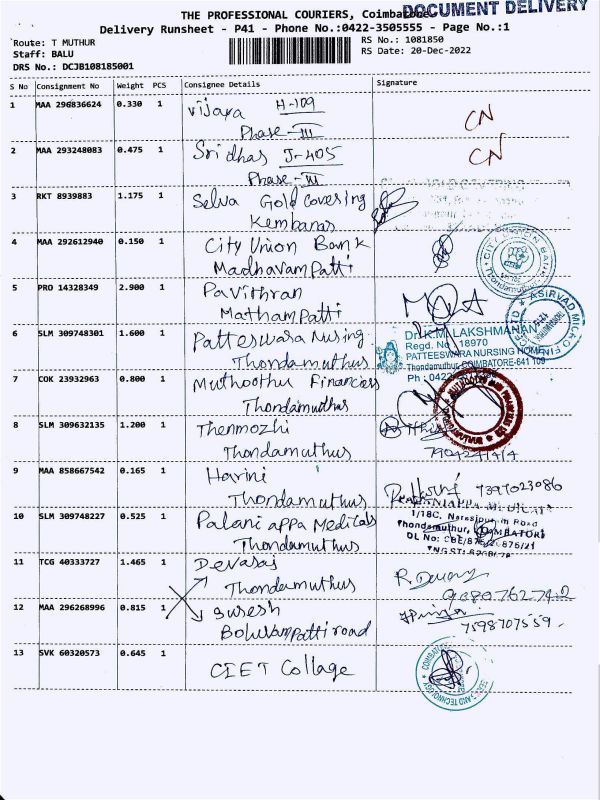 THE PROFESSIONAL COURIERS, Coimbatore
DOCUMENT DELIVERY
Delivery Runsheet - P41 - Phone No.:0422-3505555 - Page No.:1
Route: T MUTHUR
RS No.: 1081850
Staff: BALU
RS Date: 20-Dec-2022
DRS No.: DCJB108185001
S No Consignment No Weight PCS Consignee Details Signature
1 MAA 296836624 0.330 1 Vijaya H-109
Phase-III
CN
2 MAA 293248083 0.475 1 Sridhas J-405
Phase-III
CN
3 RKT 8939883 1.175 1 Selva Gold Covesing
Kembanas
4 MAA 292612940 0.150 1 City Union Bank
Madhavampatti
CITY UNION BANK
Thondamuthur
5 PRO 14328349 2.900 1 Pavithran
Mathampatti
ASIRVAD MICRO
6 SLM 309748301 1.600 1 Patteswara Nusing
Thondamuthus
Dr. K.M. LAKSHMANAN
Regd. No 18970
PATTEESWARA NURSING HOME
Thondamuthur, COIMBATORE-641 109
Ph : 0422
7 COK 23932963 0.800 1 Muthoothu Financies
Thondamuthus
8 SLM 309632135 1.200 1 Thenmozhi
Thondamuthus
9 MAA 858667542 0.165 1 Harini
Thondamuthus
7397023086
10 SLM 309748227 0.525 1 Palani appa Medicals
Thondamuthus
1/18C, Narasipuram Road
Thondamuthur, COIMBATORE
11 TCG 40333727 1.465 1 Devasaj
Thondamuthus
12 MAA 296268996 0.815 1 Suresh
Boluvampatti road
7598707559
13 SVK 60320573 0.645 1 CIET Collage